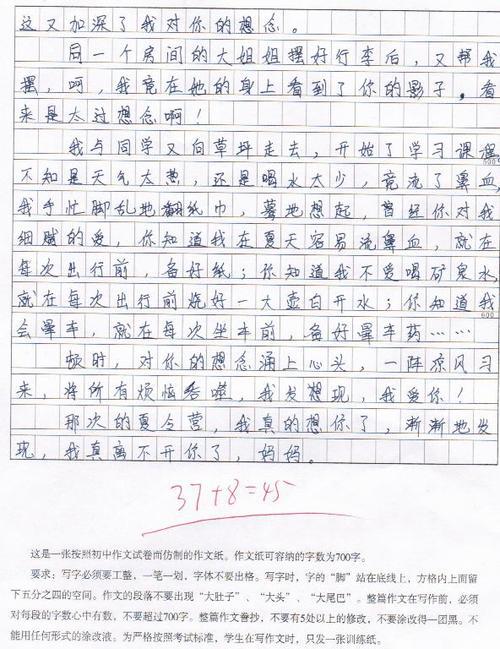 这又加深了我对你的想念。
同一个房间的大姐姐摆好行李后，又帮我
摆，呵，我竟在她的身上看到了你的影子。看
来是太过想念啊！
我与同学又向草坪走去，开始了学习课程
500
不知是天气太热，还是喝水太少，竟流了鼻血，
我手忙脚乱地翻纸巾，蓦地想起，曾经你对我
细腻的爱，你知道我在夏天容易流鼻血，就在
每次出行前，备好纸；你知道我不爱喝矿泉水，
就在每次出行前烧好一大壶白开水；你知道我
600
会晕车，就在每次坐车前，备好晕车药……
顿时，对你的想念涌上心头，一阵凉风习
来，将所有烦恼吞噬，我发想现，我爱你！
那次的夏令营，我真的想你了，渐渐地发
现，我真离不开你了，妈妈。
37+8=45
这是一张按照初中作文试卷而仿制的作文纸。作文纸可容纳的字数为700字。
要求：写字必须要工整，一笔一划，字体不要出格。写字时，字的“脚”站在底线上，方格内上而留
下五分之四的空间。作文的段落不要出现“大肚子”、“大头”、“大尾巴”。整篇作文在写作前，必须
对每段的字数心中有数，不要超过700字。整篇作文誊抄，不要有5处以上的修改，不要涂改得一团黑。不
能用任何形式的涂改液。为严格按照考试标准，学生在写作文时，只发一张训练纸。